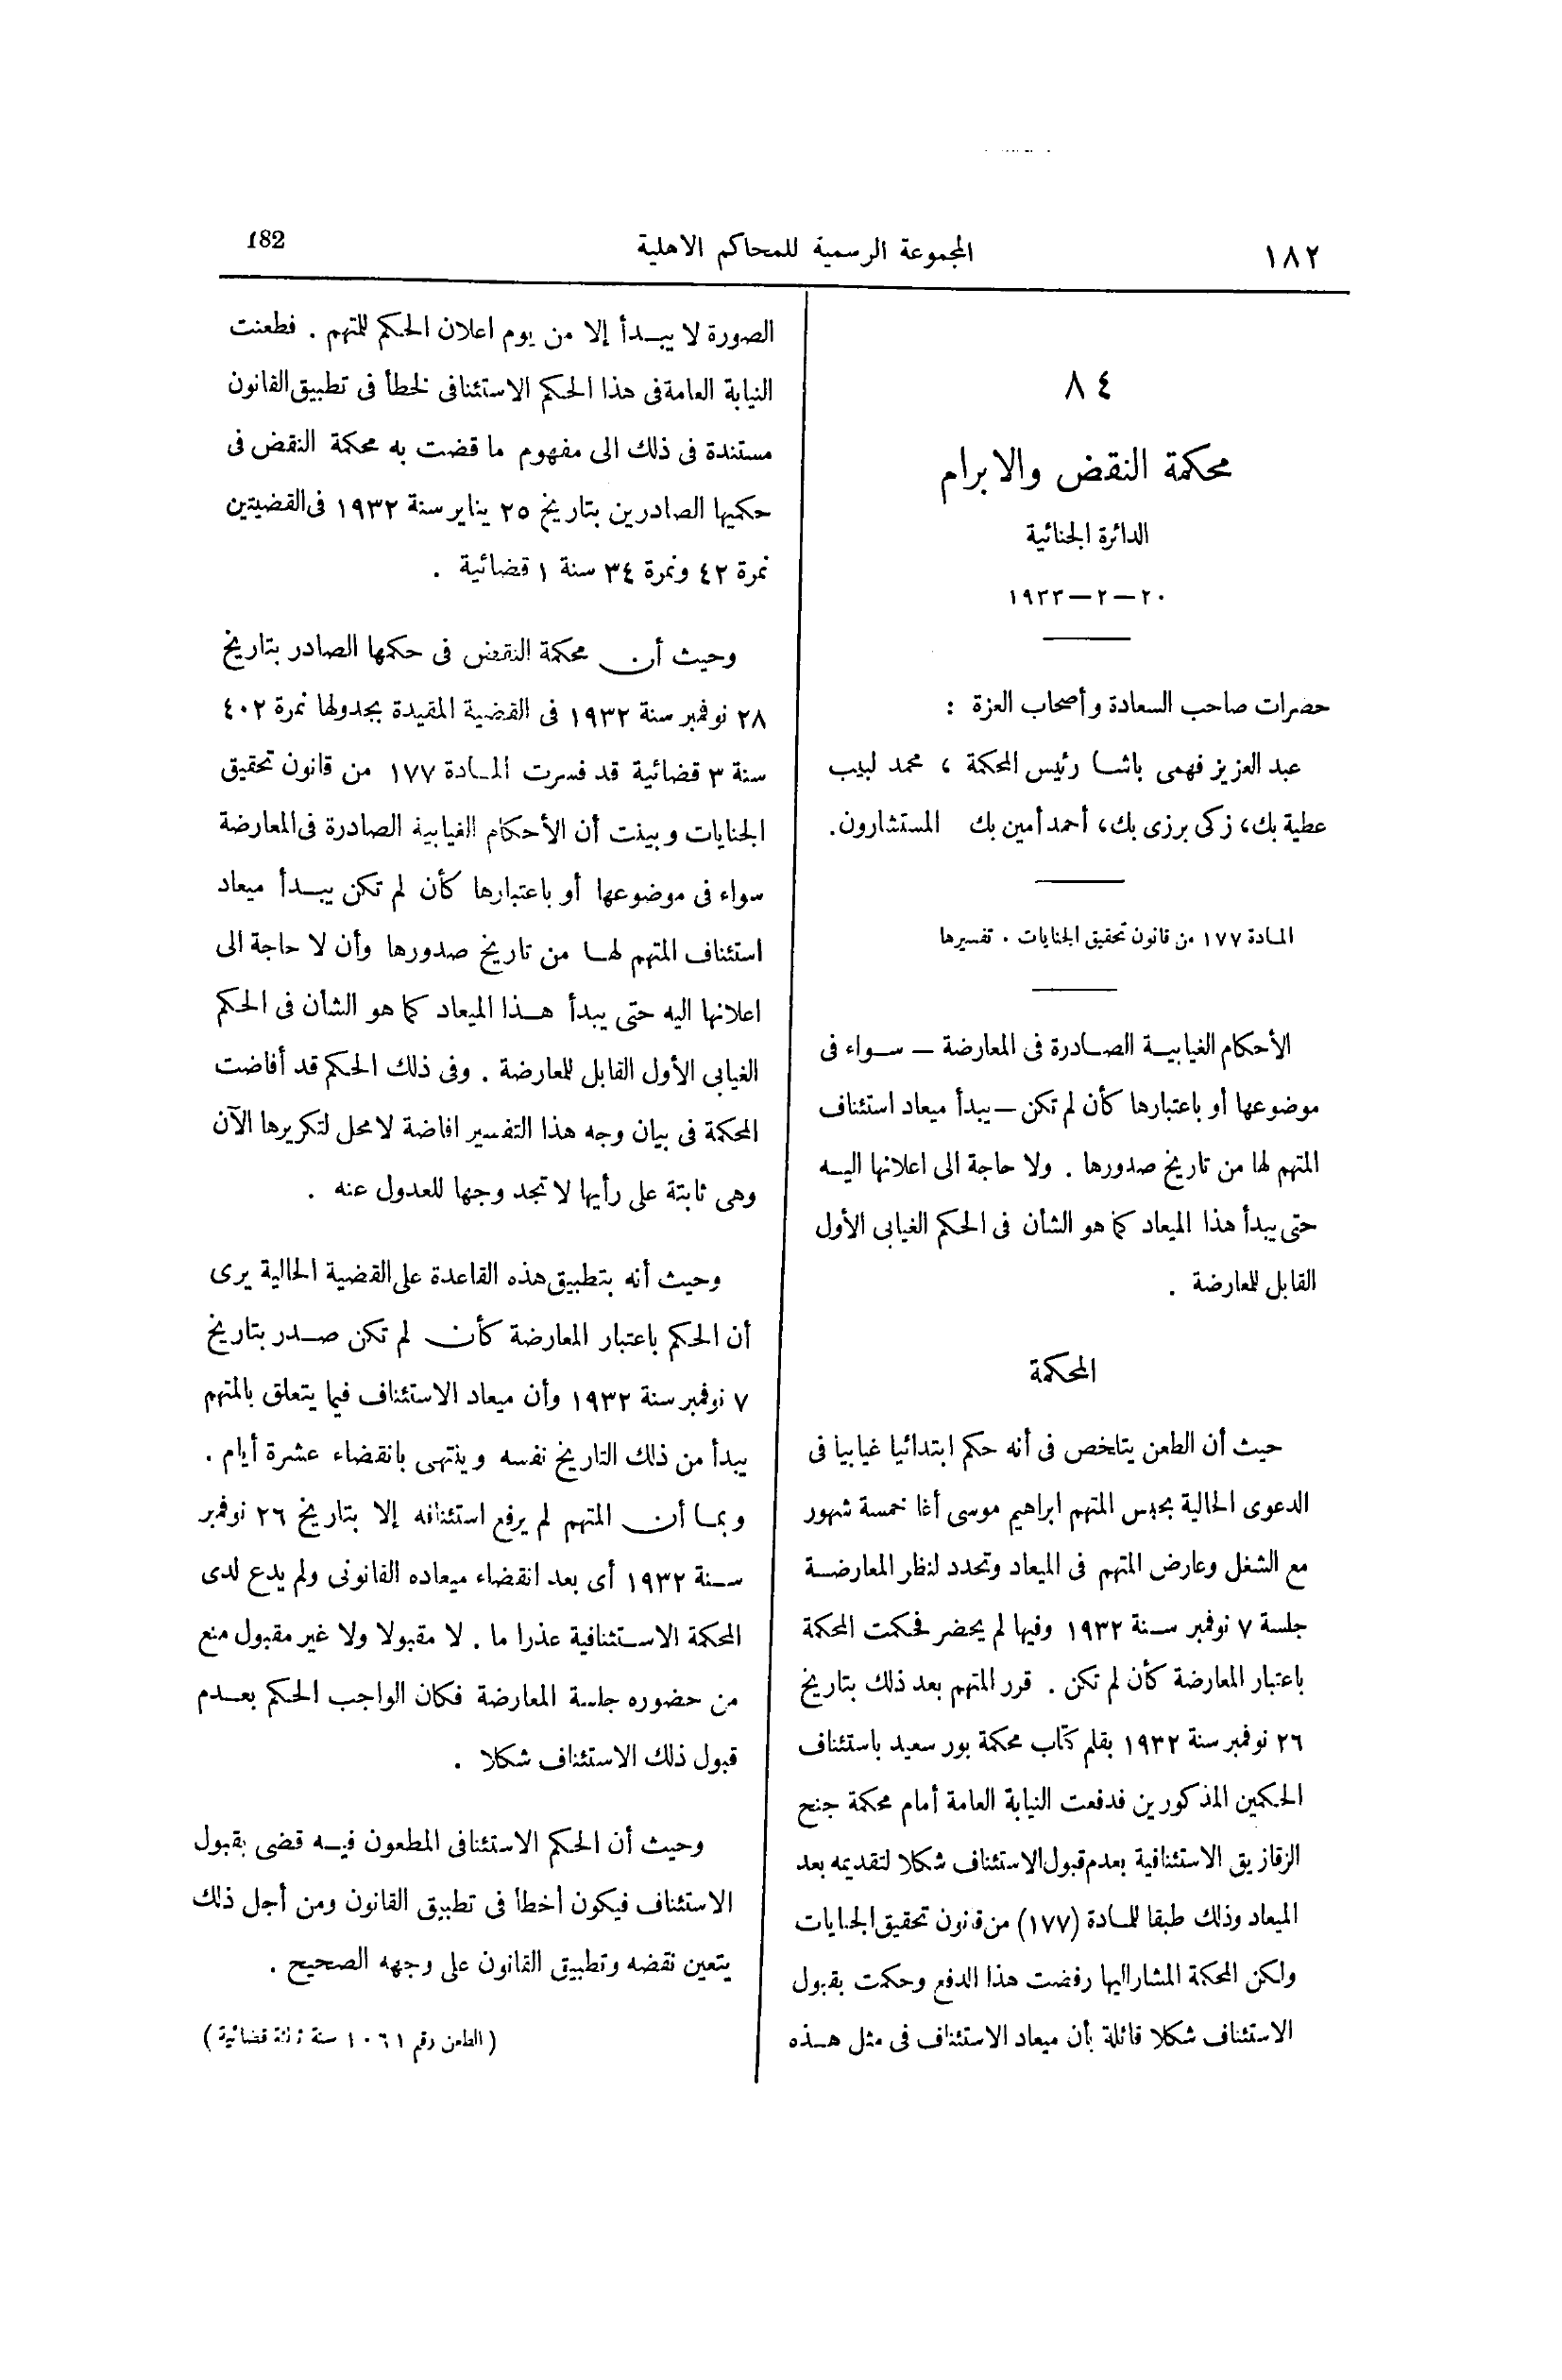 ١٨٢
المجموعة الرسمية للمحاكم الاهلية
182
٨٤
محكمة النقض والابرام
الدائرة الجنائية
٢٠ — ٢ — ١٩٣٣
حضرات صاحب السعادة وأصحاب العزة :
عبد العزيز فهمى باشا رئيس المحكمة ، محمد لبيب
عطية بك، زكى برزى بك، أحمد أمين بك المستشارون.
المادة ١٧٧ من قانون تحقيق الجنايات . تفسيرها
الأحكام الغيابية الصادرة فى المعارضة — سواء فى
موضوعها أو باعتبارها كأن لم تكن — يبدأ ميعاد استئناف
المتهم لها من تاريخ صدورها . ولا حاجة الى اعلانها اليه
حتى يبدأ هذا الميعاد كما هو الشأن فى الحكم الغيابى الأول
القابل للمعارضة .
المحكمة
حيث أن الطعن يتلخص فى أنه حكم ابتدائيا غيابيا فى
الدعوى الحالية بحبس المتهم ابراهيم موسى أغا خمسة شهور
مع الشغل وعارض المتهم فى الميعاد وتحدد لنظر المعارضة
جلسة ٧ نوفمبر سنة ١٩٣٢ وفيها لم يحضر فحكمت المحكمة
باعتبار المعارضة كأن لم تكن . قرر المتهم بعد ذلك بتاريخ
٢٦ نوفمبر سنة ١٩٣٢ بقلم كتّاب محكمة بور سعيد باستئناف
الحكمين المذكورين فدفعت النيابة العامة أمام محكمة جنح
الزقازيق الاستئنافية بعدم قبول الاستئناف شكلا لتقديمه بعد
الميعاد وذلك طبقا للمادة (١٧٧) من قانون تحقيق الجنايات
ولكن المحكمة المشار اليها رفضت هذا الدفع وحكمت بقبول
الاستئناف شكلا قائلة بأن ميعاد الاستئناف فى مثل هذه
الصورة لا يبدأ إلا من يوم اعلان الحكم للمتهم . فطعنت
النيابة العامة فى هذا الحكم الاستئنافى لخطأ فى تطبيق القانون
مستندة فى ذلك الى مفهوم ما قضت به محكمة النقض فى
حكميها الصادرين بتاريخ ٢٥ يناير سنة ١٩٣٢ فى القضيتين
نمرة ٤٢ ونمرة ٣٤ سنة ١ قضائية .
وحيث أن محكمة النقض فى حكمها الصادر بتاريخ
٢٨ نوفمبر سنة ١٩٣٢ فى القضية المقيدة بجدولها نمرة ٤٠٢
سنة ٣ قضائية قد فسرت المادة ١٧٧ من قانون تحقيق
الجنايات وبينت أن الأحكام الغيابية الصادرة فى المعارضة
سواء فى موضوعها أو باعتبارها كأن لم تكن يبدأ ميعاد
استئناف المتهم لها من تاريخ صدورها وأن لا حاجة الى
اعلانها اليه حتى يبدأ هذا الميعاد كما هو الشأن فى الحكم
الغيابى الأول القابل للمعارضة . وفى ذلك الحكم قد أفاضت
المحكمة فى بيان وجه هذا التفسير افاضة لا محل لتكريرها الآن
وهى ثابتة على رأيها لا تجد وجها للعدول عنه .
وحيث أنه بتطبيق هذه القاعدة على القضية الحالية يرى
أن الحكم باعتبار المعارضة كأن لم تكن صدر بتاريخ
٧ نوفمبر سنة ١٩٣٢ وأن ميعاد الاستئناف فيما يتعلق بالمتهم
يبدأ من ذلك التاريخ نفسه وينتهى بانقضاء عشرة أيام .
وبما أن المتهم لم يرفع استئنافه إلا بتاريخ ٢٦ نوفمبر
سنة ١٩٣٢ أى بعد انقضاء ميعاده القانونى ولم يدع لدى
المحكمة الاستئنافية عذرا ما . لا مقبولا ولا غير مقبول منع
من حضوره جلسة المعارضة فكان الواجب الحكم بعدم
قبول ذلك الاستئناف شكلا .
وحيث أن الحكم الاستئنافى المطعون فيه قضى بقبول
الاستئناف فيكون أخطأ فى تطبيق القانون ومن أجل ذلك
يتعين نقضه وتطبيق القانون على وجهه الصحيح .
( الطعن رقم ١٠٦١ سنة ثالثة قضائية )